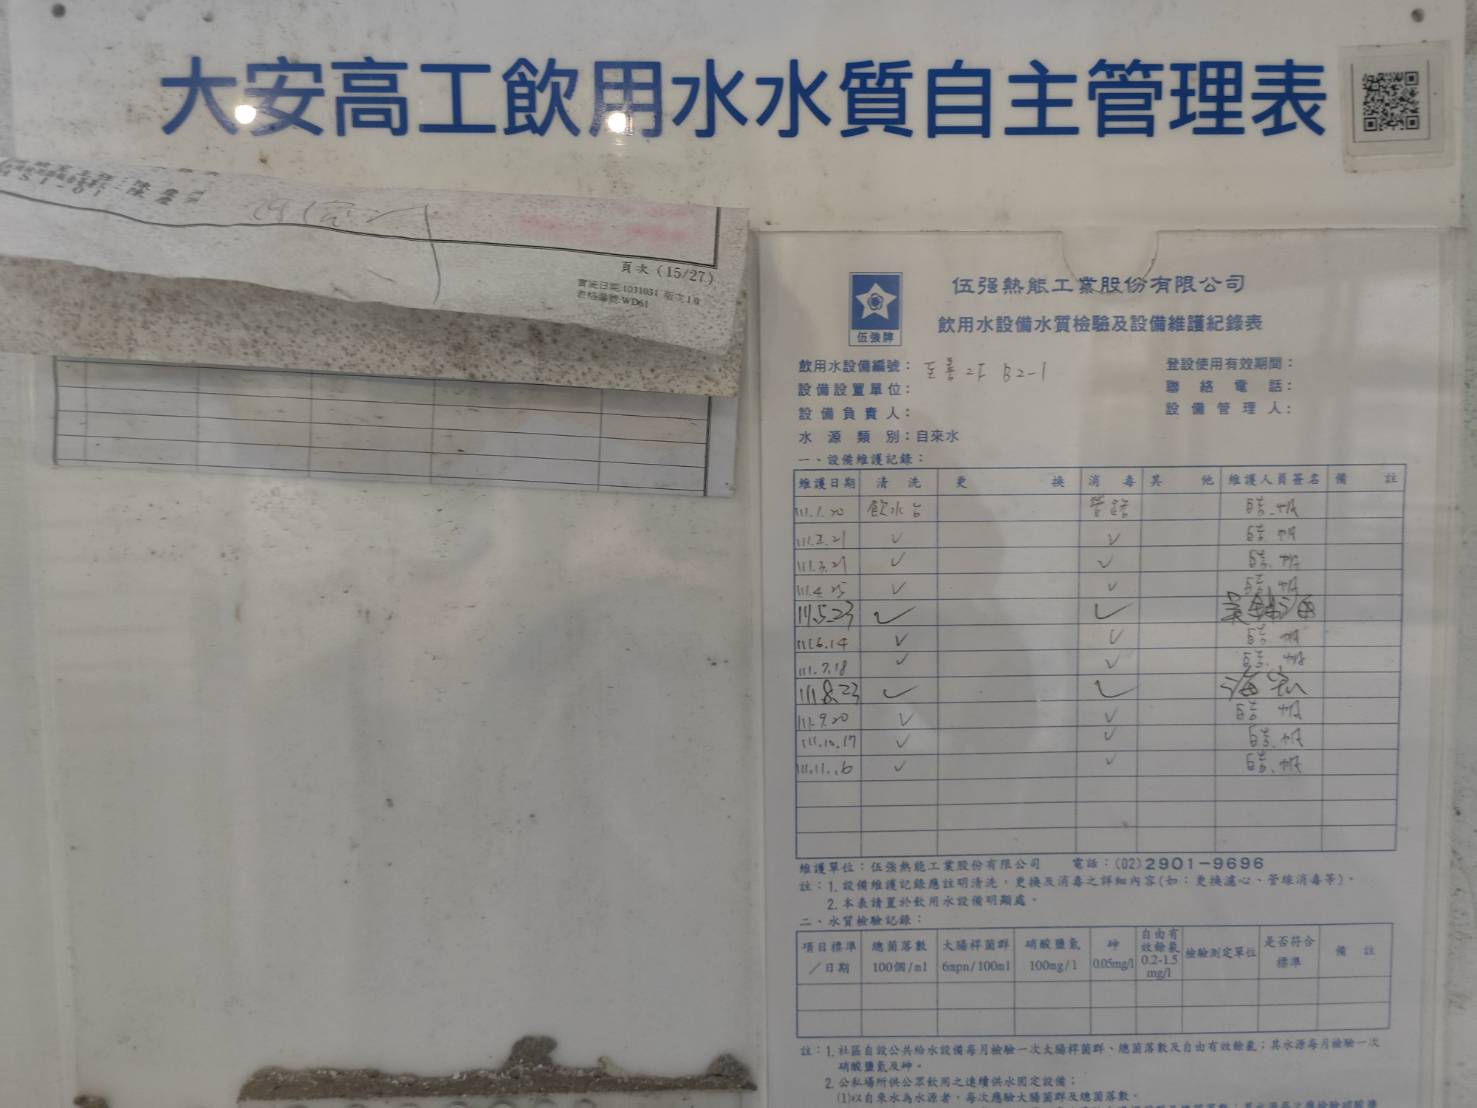 大安高工飲用水水質自主管理表
頁次 (15/27)
實施日期:1031031 版次1.0
表格編號:WD61
伍強牌
伍强熱能工業股份有限公司
飲用水設備水質檢驗及設備維護紀錄表
飲用水設備編號： 至善2F B2-1 登設使用有效期間：
設備設置單位： 聯絡電話：
設備負責人： 設備管理人：
水源類別：自來水
一、設備維護記錄：
維護日期 清洗 更換 消毒 其他 維護人員簽名 備註
111.1.20 飲水台 管路
111.2.21 ✓ ✓
111.3.21 ✓ ✓
111.4.25 ✓ ✓
111.5.23 ✓ ✓
111.6.14 ✓ ✓
111.7.18 ✓ ✓
111.8.23 ✓ ✓
111.9.20 ✓ ✓
111.10.17 ✓ ✓
111.11.16 ✓ ✓
維護單位：伍強熱能工業股份有限公司 電話：(02)2901-9696
註：1.設備維護記錄應註明清洗，更換及消毒之詳細內容(如：更換濾心、管線消毒等)。
2.本表請置於飲用水設備明顯處。
二、水質檢驗記錄：
項目標準／日期 總菌落數 100個/ml 大腸桿菌群 6mpn/100ml 硝酸鹽氮 100mg/l 砷 0.05mg/l 自由有效餘氯 0.2-1.5 mg/l 檢驗測定單位 是否符合標準 備註
註：1.社區自設公共給水設備每月檢驗一次大腸桿菌群、總菌落數及自由有效餘氯；其水源每月檢驗一次
硝酸鹽氮及砷。
2.公私場所供公眾飲用之連續供水固定設備；
(1)以自來水為水源者，每次應驗大腸菌群及總菌落數。